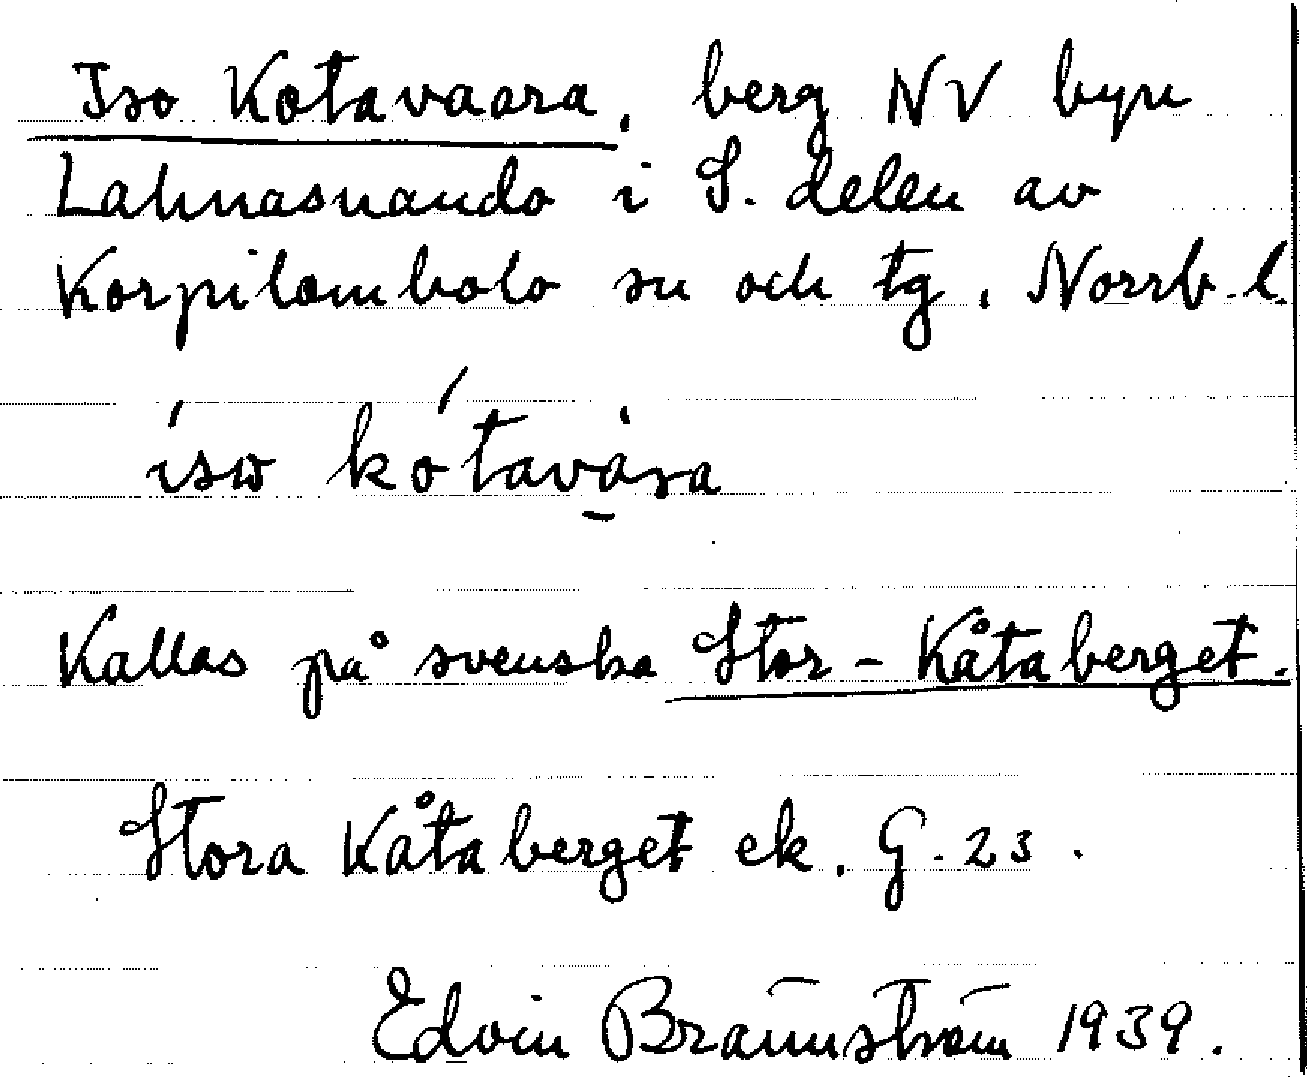 Iso Kotavaara, berg NV byn
Lahnasuando i S. delen av
Korpilombolo sn och tg, Norrb. l.
íso kótavàra
Kallas på svenska Stor-Kåtaberget.
Stora Kåtaberget ek. G. 23.
Edvin Brännström 1939.